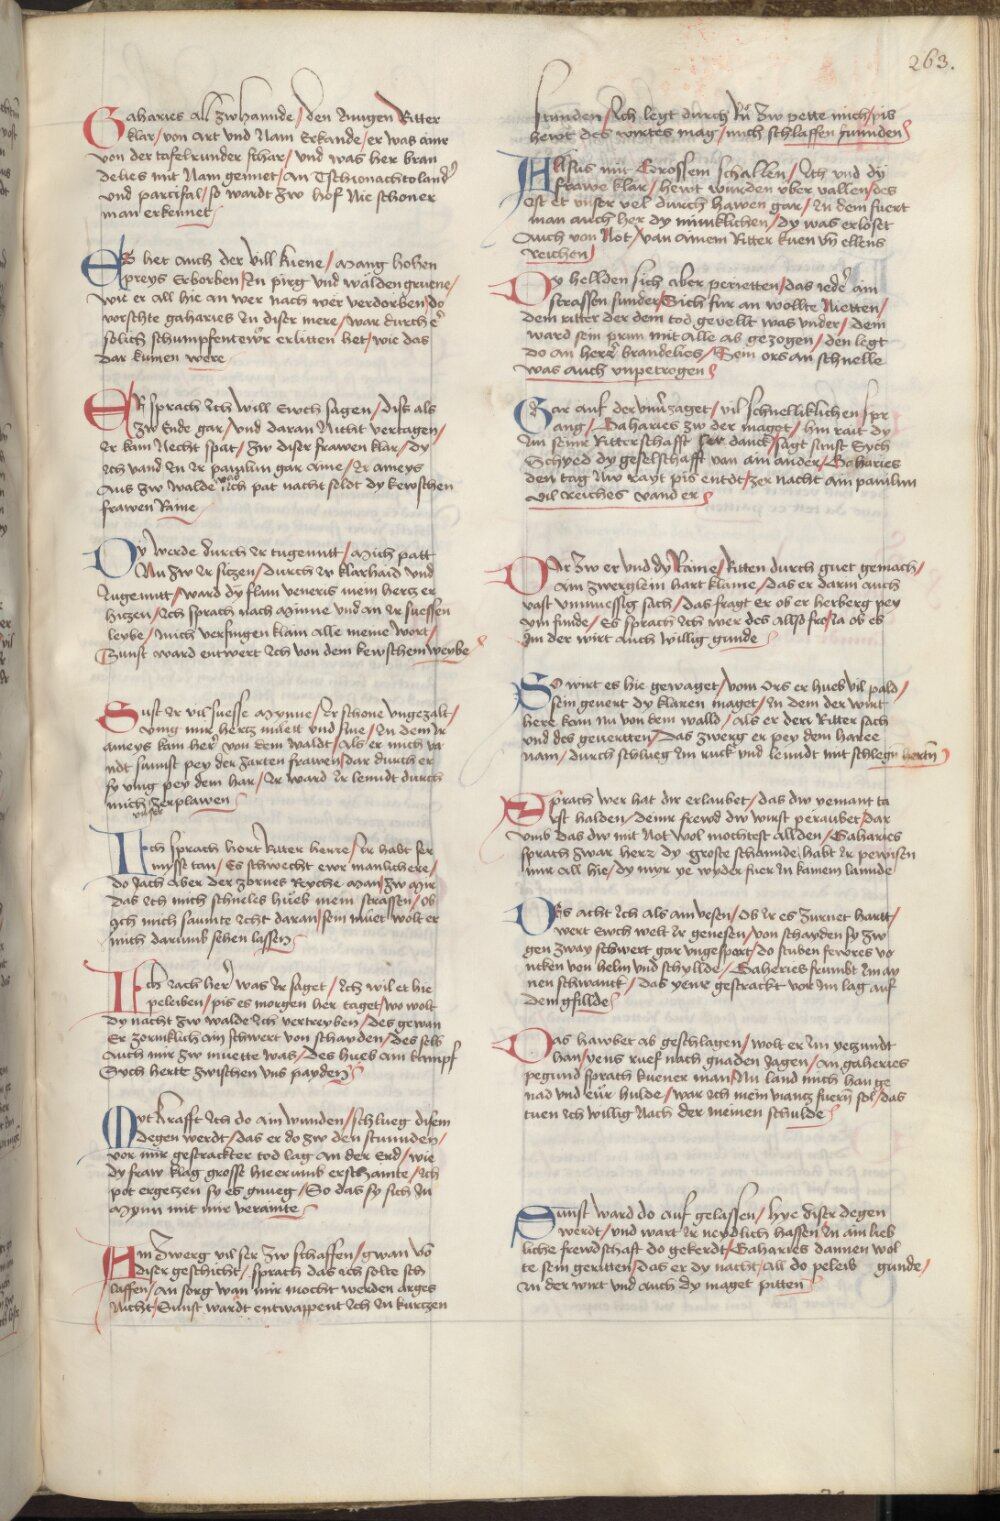 263.
Gaharies all zw hannde / den Iungen Ritter
klar / von art vnd Nam Erkande / er was ainr
von der tafelrunder schar / vnd was her bran
delies mit Nam genñet / An Tschionachtolander
vnd parcifal / so wardt zw hof Nie schoner
man erkennet
Es het auch der vill kuene / Mang hohen
preys Erborben / In pirg vnd wälden gruene /
wie er all hie an wer nach wer verdorben / do
vorschte gaharies In diser mere / war durch er
sölich schumpfentewr erlitten het / wie das
dar kumen were
Er sprach Ich will Euch sagen / Dise als
zw Ende gar / vnd daran Nicht vertagen /
Er kam Necht spat / zw diser frawen klar / dy
Ich vand In Ir paulun gar aine / Ir ameys
Aus zw walde was Ich pat nacht selde dy kewschen
frawen Raine
Dy werde durch Ir tugenntt / Mich patt
Nu zw Ir siczen / Durch Ir klarhaid vnd
Iugenntt / ward dy flam veneris mein hercz er
hiczen / Ich sprach nach Minne vnd an Ir suessen
leybe / mich verfingen klain alle meine wort /
Sunst ward entwert Ich von dem kewschem weybe
Sust Ir vil suesse Mynne / Ir schone vngezalt /
Ving mir hercz muett vnd sine / In dem Ir
ameys kam her von dem waldt / Als er mich va
ndt sunst pey der zarten frawen / dar durch er
sy ving pey dem har / Ir ward Ir lenndt durch
mich zerplawen
vnser
Ich sprach hort Ritter herre / Ir habt ser
mysse tan / Es schwecht ewr manlich ere /
do Iach aber der zornes Reyche Man / zw Mir
das Ich mich schneles hueb mein strassen / ob
Ich mich saumte Icht daran / sein muet wolt er
mich darumb sehen lassen
Ich Iach her was Ir saget / Ich wil et hie
peleiben / pis es morgen her taget / wo wolt
dy nacht zw walde Ich vertreyben / des gewan
Er zorniklich ain schwert von schayden / des selb
Auch mir zw muette was / des hueb ain kampf
Sych hertt zwischen vns payden
Mit krafft Ich do ain wunden / schlueg disem
degen werdt / das er do zw den stunnden /
vor mir gestrackter tod lag an der Erd / wie
dy fraw klag grosse hie er umb erschainte / Ich
pot ergeczen sy es gnueg / So das sy sich In
Mynn mit mir verainte
Ain Zwerg vil ser zw schaffen / gwan vō
diser geschicht / sprach das ich solte sch
laffen / an sorg wan mir mocht werden arges
Nicht / Sunst wardt entwappent Ich In kurczen
stunden / Ich legt durch zw pette mich / pis
hewt des wirtes mag / mich schlaffen funnden
Allsus mit Grossem schallen / Ich vnd dy
frawe klar / hewt wurden vber vallen / des
ist et vnser vel durch hawen gar / In dem fuert
man auch her dy minniklichen / Dy was erlöset
Auch von Not / van ainem Ritter kuen vñ ellens
reichen
Dy hellden sich aber perietten / das ieder ain
strassen sunder / Sich fur an wollte Nietten /
dem ritter der dem tod gevellt was vnder / dem
ward sein prun mit alle ab gezogen / den legt
do an herr brandelies / Sein ors an schnelle
was auch vnpetrogen
Gar auf der vnverzaget / vil schnelliklichen spr
ang / Gaharies zw der maget / hin rait dy
Im seinr Ritterschafft danck / sagt sunst Sych
Schyed dy geselschafft van ain ander / Gaharies
den tag Nw rayt pis entdt / zer nacht ain paulun
vil reiches vand er
Dar zw er vnd dy Raine / Ritten durch guet gemach /
Ain zwerglein hart klaine / das er darin auch
vast vnmuessig sach / das fragt er ob er herberg pey
vm funde / Es sprach Ich wer des allso fro / Ia ob es
Im der wirt auch willig gunde
So wirt es hie gewaget / vom Ors er hueb vil pald /
sein gevert dy klaren maget / In dem der wirt
here kam nu von dem walld / als er den Ritter sach
vnd des gevertten / Das zwerg er pey dem haree
nam / durch schlueg Im ruck vnd lenndt mit schlegn hertn
Sprach wer hat dir erlaubet / das dw yemant ta
ist halden / deinr frewd dw wirst peraubet / dar
vmb das dw mit Not wol mochtest allden / Gaharies
sprach zwar herr dy groste schannde habt Ir pewisen
mir all hie / dy myr ye wyder fuer In kainem lannde
Des acht Ich als ain vesen / Ob Ir es zurnet hartt /
wert Ewch welt Ir genesen / von schayden sy zw
gen zway schwert gar vngespart / do stuben fewres vo
ncken von helm vnd schyllde / Gaheries frumbt Im ay
nen schwanck / das yenr gestrackt vor Im lag auf
dem gfillde
Das hawbet ab geschlagen / wolt er Im yezundt
han / yens ruef nach gnaden Iagen / An gaheries
pegund sprach kuener man / Nu land mich han ge
nad vnd eur hulde / war Ich mein viantz fuern sol / das
tuen Ich willig Nach der meinen schulde
Sunst ward do auf gelassen / hye diser degen
werdt / vnd wart Ir neydlich hassen / In ain lieb
liche frewdschaft do gekerdt / Gaharies dannen wol
te sein geritten / das er dy nacht all do peleib gunde /
In der wirt vnd auch dy maget pitten